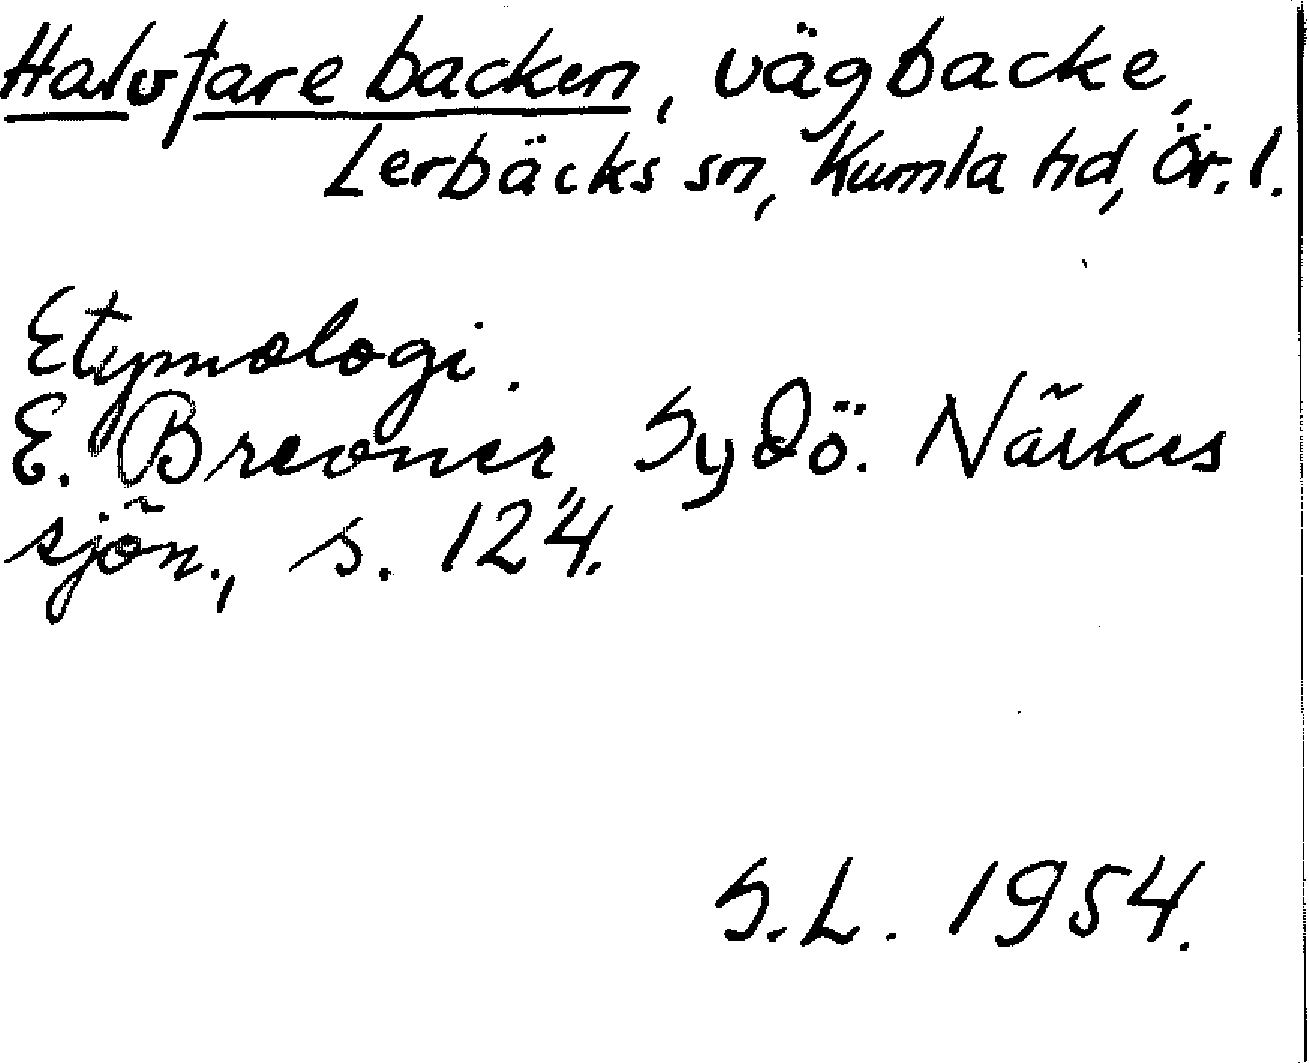 Halvfarebacken, vägbacke,
Lerbäcks sn, Kumla hd, Ör. l.
Etymologi.
E. Brevner, Sydö. Närkes
sjön., s. 124.
S.L. 1954.